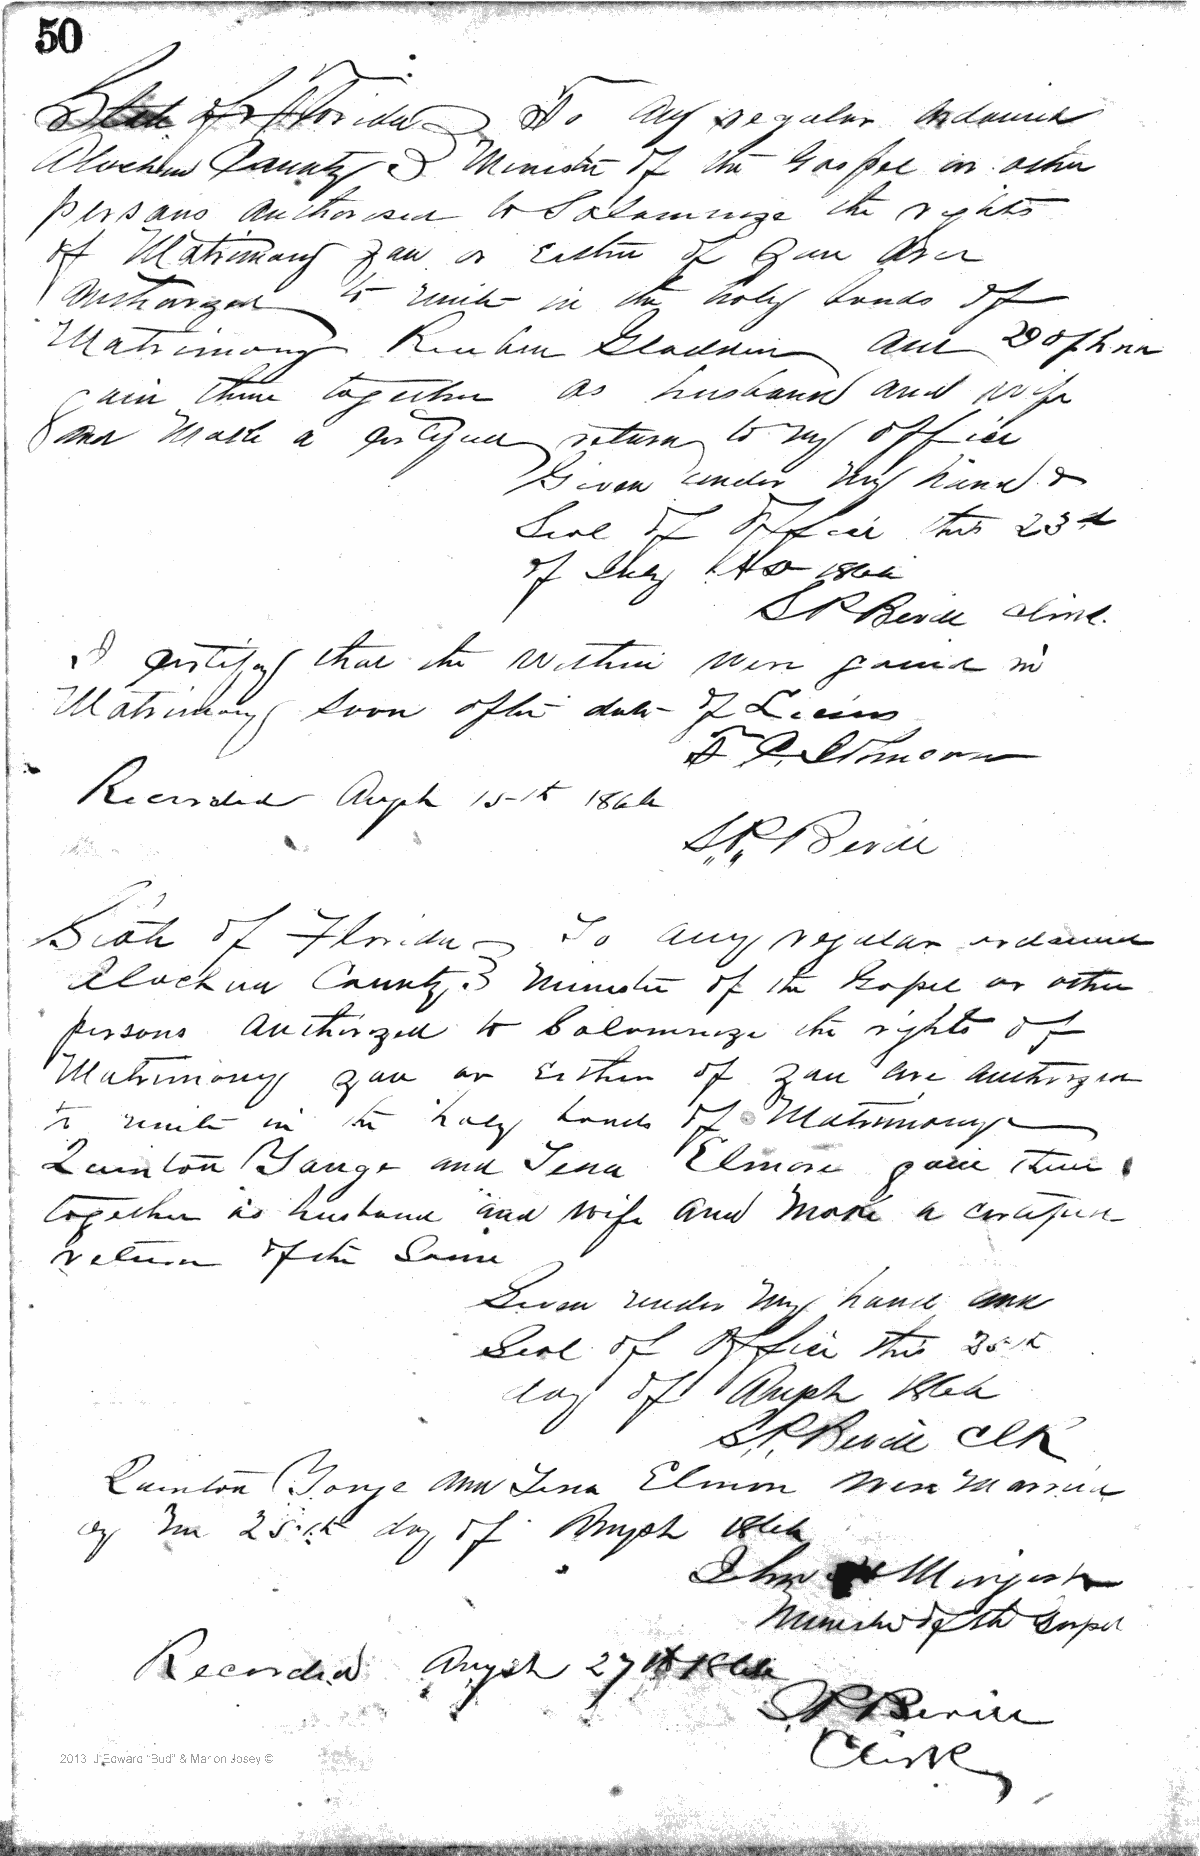 50
State of Florida } To any regular ordained
Alachua County } Minister of the Gospel or other
persons authorised to Solemnize the rights
of Matrimony you or either of you are
authorized to unite in the holy bonds of
Matrimony Reuben Gladden and
join them together as husband and wife
and make a certified return to my office
Given under my hand &
Seal of Office this 23d
of July AD 1866
S P Bevill Clerk
I certify that the within were joined in
Matrimony soon after date of Licens
Recorded Augst 15th 1866
S.P. Bevill
State of Florida } To any regular ordained
Alachua County } Minister of the Gospel or other
persons authorized to Solemnize the rights of
Matrimony you or either of you are authorized
to unite in the holy bonds of Matrimony
Quinton Yonge and Tena Elmore join them
together as husband and wife and make a certified
return of the Same
Given under my hand and
Seal of Office this 25th
day of Augst 1866
S.P. Bevill Clk
Quinton Yonge and Tena Elmore were Married
by me 25th day of Augst 1866
John
Minister of the Gospel
Recorded Augst 27th 1866
S P Bevill
Clerk
2013 J Edward "Bud" & Marion Josey ©